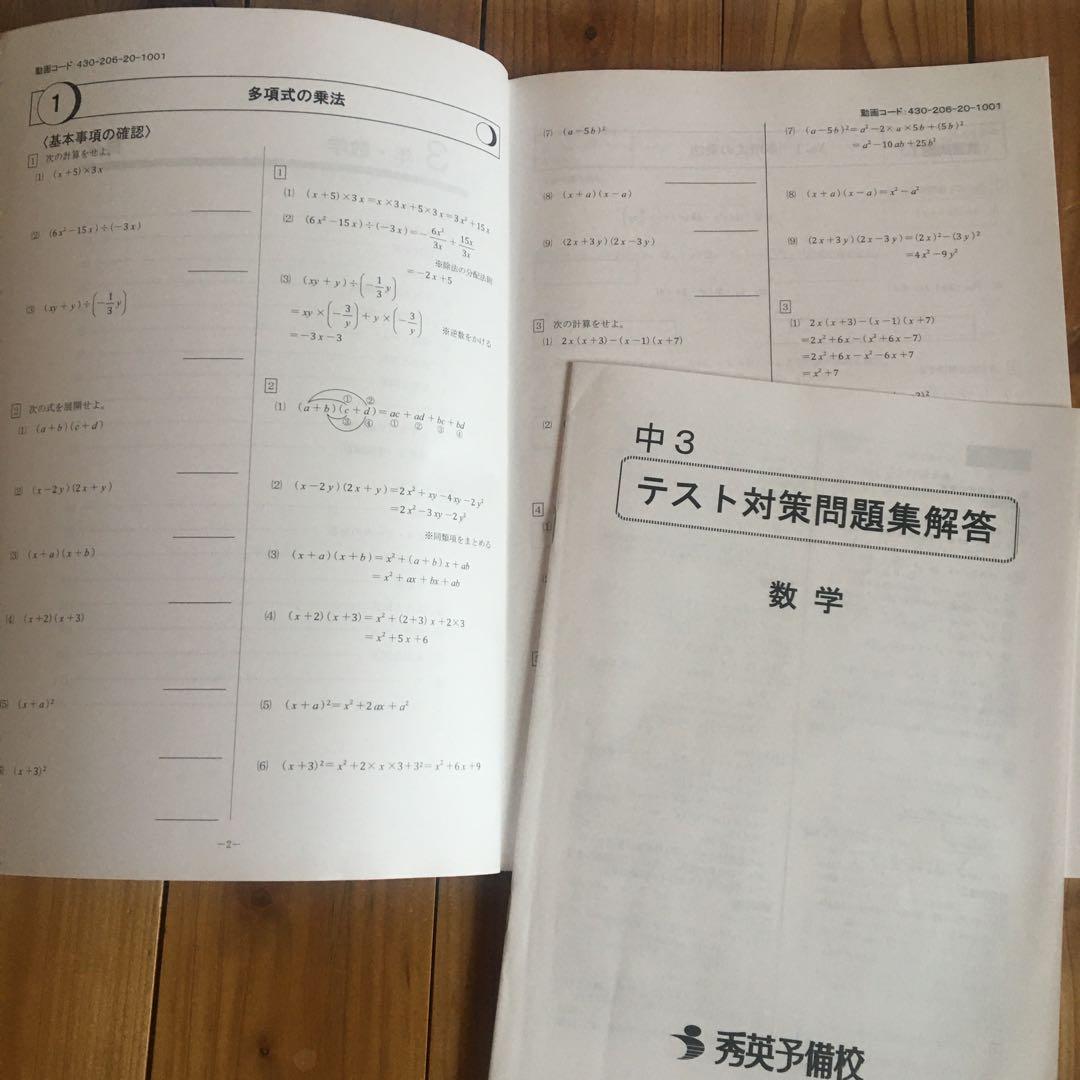 動画コード:430-206-20-1001
1 多項式の乗法
〈基本事項の確認〉
1 次の計算をせよ。
(1) (x+5)×3x
(2) (6x²−15x)÷(−3x)
(3) (xy+y)÷(−1/3 y)
2 次の式を展開せよ。
(1) (a+b)(c+d)
(2) (x−2y)(2x+y)
(3) (x+a)(x+b)
(4) (x+2)(x+3)
(5) (x+a)²
(x+3)²
1
(1) (x+5)×3x=x×3x+5×3x=3x²+15x
(2) (6x²−15x)÷(−3x)=−6x²/3x+15x/3x
※除法の分配法則
=−2x+5
(3) (xy+y)÷(−1/3 y)
=xy×(−3/y)+y×(−3/y)
=−3x−3 ※逆数をかける
2
(1) (a+b)(c+d)=ac+ad+bc+bd
① ② ③ ④
① ② ③ ④
(2) (x−2y)(2x+y)=2x²+xy−4xy−2y²
=2x²−3xy−2y²
※同類項をまとめる
(3) (x+a)(x+b)=x²+(a+b)x+ab
=x²+ax+bx+ab
(4) (x+2)(x+3)=x²+(2+3)x+2×3
=x²+5x+6
(5) (x+a)²=x²+2ax+a²
(6) (x+3)²=x²+2×x×3+3²=x²+6x+9
−2−
動画コード:430-206-20-1001
(7) (a−5b)²
(8) (x+a)(x−a)
(9) (2x+3y)(2x−3y)
3 次の計算をせよ。
(1) 2x(x+3)−(x−1)(x+7)
(2)
4
(7) (a−5b)²=a²−2×a×5b+(5b)²
=a²−10ab+25b²
(8) (x+a)(x−a)=x²−a²
(9) (2x+3y)(2x−3y)=(2x)²−(3y)²
=4x²−9y²
3
(1) 2x(x+3)−(x−1)(x+7)
=2x²+6x−(x²+6x−7)
=2x²+6x−x²−6x+7
=x²+7
中3
テスト対策問題集解答
数学
秀英予備校